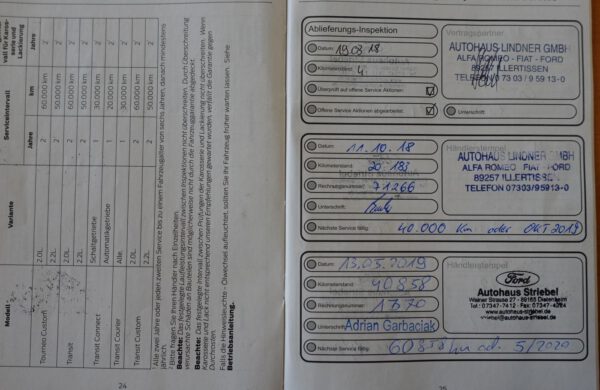 Modell
Variante
Serviceintervall
Jahre
km
Jahre
vall für Karos-
serie und
Lackierung
Tourneo Custom
2.0L
2
60.000 km
2
2.2L
2
50.000 km
2
Transit
2.0L
2
60.000 km
2
2.2L
2
50.000 km
2
Transit Connect
Schaltgetriebe
1
30.000 km
2
Automatikgetriebe
1
20.000 km
2
Transit Courier
Alle.
1
30.000 km
2
Transit Custom
2.0L
2
60.000 km
2
2.2L
2
50.000 km
2
Alle zwei Jahre oder jeden zweiten Service bis zu einem Fahrzeugalter von sechs Jahren, danach mindestens
jährlich.
Bitte fragen Sie Ihren Händler nach Einzelheiten.
Beachte: Das festgelegte Laufleistungsintervall zwischen Inspektionen nicht überschreiten. Durch Überschreitung
verursachte Schäden an Bauteilen sind möglicherweise nicht durch die Fahrzeuggarantie abgedeckt.
Beachte: Das festgelegte Intervall zwischen Prüfungen der Karosserie und Lackierung nicht überschreiten. Wenn
Karosserie und Lack nicht entsprechend unseren Empfehlungen gewartet wurden, verfällt die Garantie gegen
Durchrosten.
Falls die Hinweisleuchte - Ölwechsel aufleuchtet, sollten Sie Ihr Fahrzeug früher warten lassen. Siehe
Betriebsanleitung.
24
Ablieferungs-Inspektion
Vertragspartner
Datum: 19.03.18
Kilometerstand: 4
Überprüft auf offene Service Aktionen
Offene Service Aktionen abgearbeitet
AUTOHAUS LINDNER GMBH
ALFA ROMEO - FIAT - FORD
89257 ILLERTISSEN
TELEFON 0 73 03 / 9 59 13-0
Unterschrift:
Datum: 11.10.18
Kilometerstand: 20 183
Rechnungsnummer: 71266
Unterschrift:
Nächste Service fällig: 40.000 km oder Okt 2019
Händlerstempel
AUTOHAUS LINDNER GMBH
ALFA ROMEO - FIAT - FORD
89257 ILLERTISSEN
TELEFON 07303/95913-0
Datum: 13.05.2019
Kilometerstand: 40858
Rechnungsnummer: 1770
Unterschrift: Adrian Garbaciak
Nächste Service fällig: 60858 km od. 5/2020
Händlerstempel
Ford
Autohaus Striebel
Wainer Strasse 27 - 89165 Dietenheim
Tel.: 07347-7412 - Fax: 07347-4284
www.autohaus-striebel.de
25